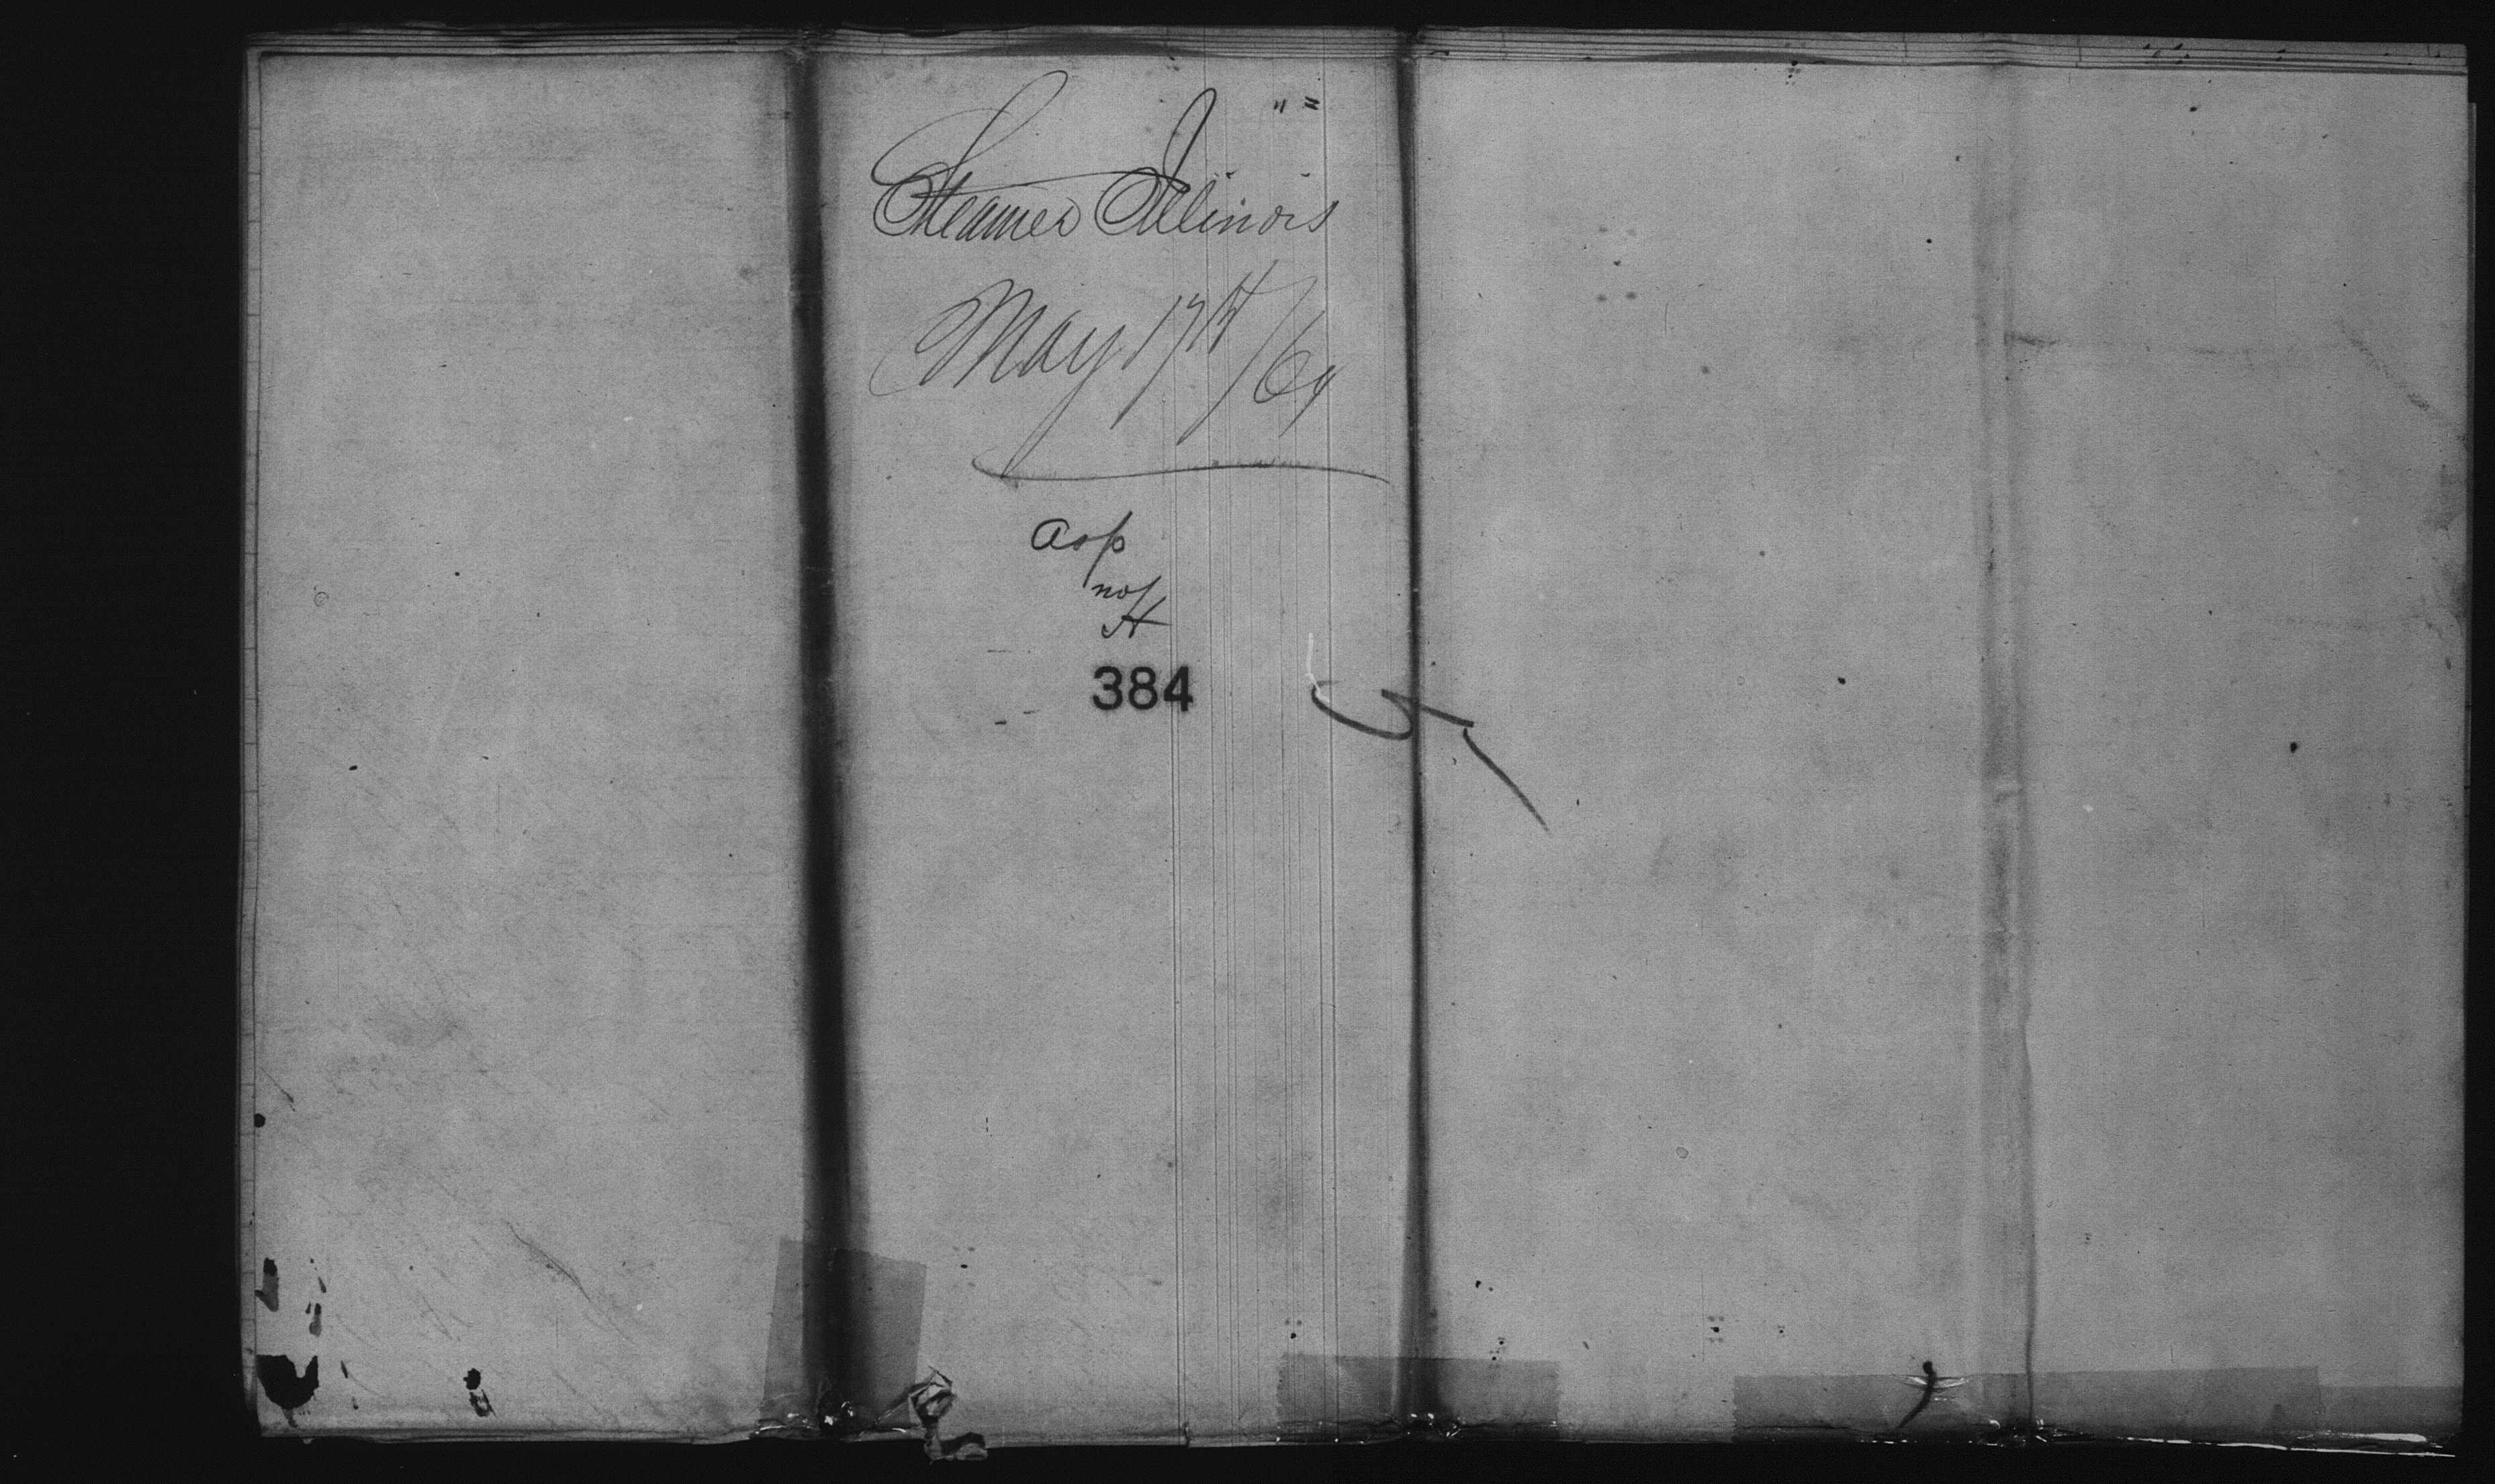 Steamer Illinois
May 17th/64
asp
not
H
384